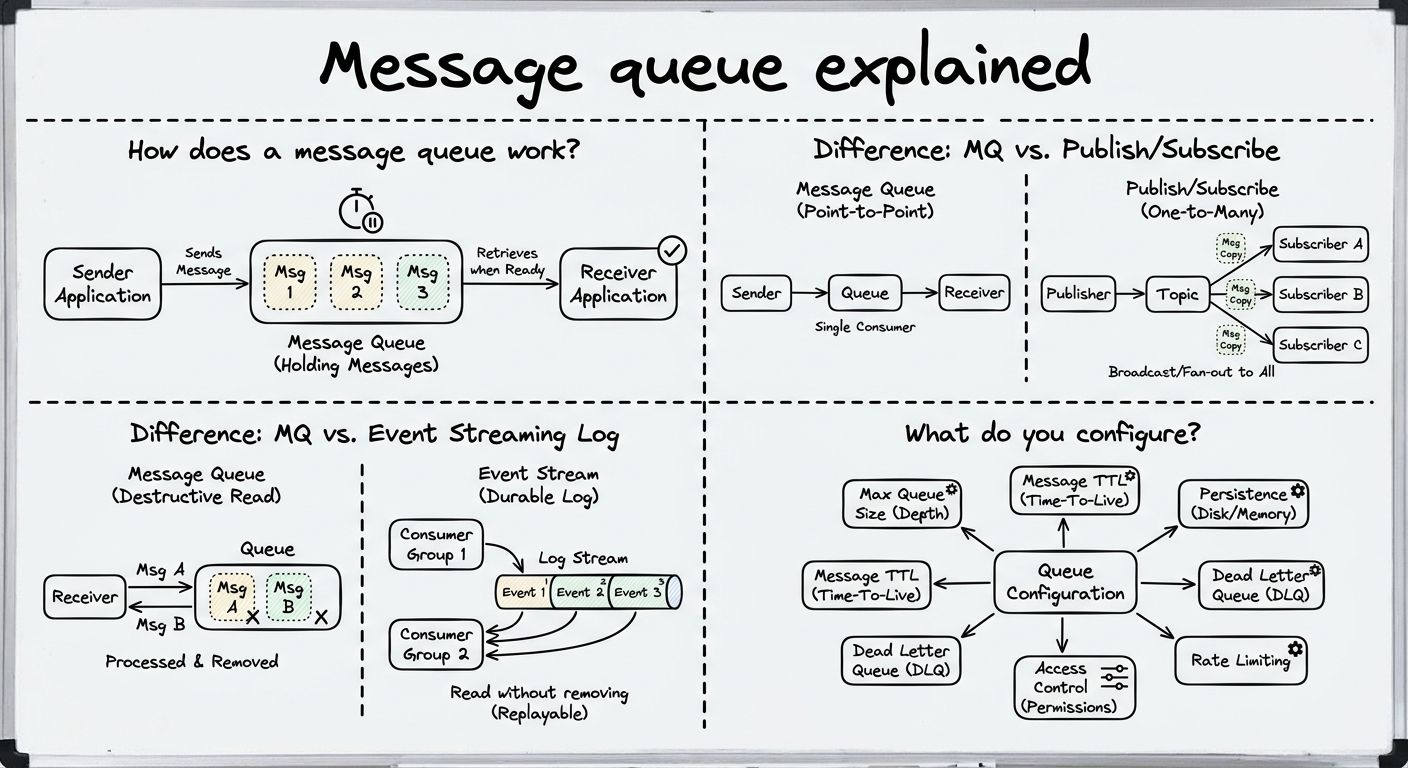 Message queue explained
How does a message queue work?
Sender
Application
Sends
Message
Msg
1
Msg
2
Msg
3
Message Queue
(Holding Messages)
Retrieves
when Ready
Receiver
Application
Difference: MQ vs. Publish/Subscribe
Message Queue
(Point-to-Point)
Sender
Queue
Receiver
Single Consumer
Publish/Subscribe
(One-to-Many)
Publisher
Topic
Msg
Copy
Msg
Copy
Msg
Copy
Subscriber A
Subscriber B
Subscriber C
Broadcast/Fan-out to All
Difference: MQ vs. Event Streaming Log
Message Queue
(Destructive Read)
Receiver
Msg A
Msg B
Queue
Msg
A
Msg
B
Processed & Removed
Event Stream
(Durable Log)
Consumer
Group 1
Log Stream
Event 1
1
Event 2
2
Event 3
3
Consumer
Group 2
Read without removing
(Replayable)
What do you configure?
Max Queue
Size (Depth)
Message TTL
(Time-To-Live)
Persistence
(Disk/Memory)
Message TTL
(Time-To-Live)
Queue
Configuration
Dead Letter
Queue (DLQ)
Dead Letter
Queue (DLQ)
Access
Control
(Permissions)
Rate Limiting